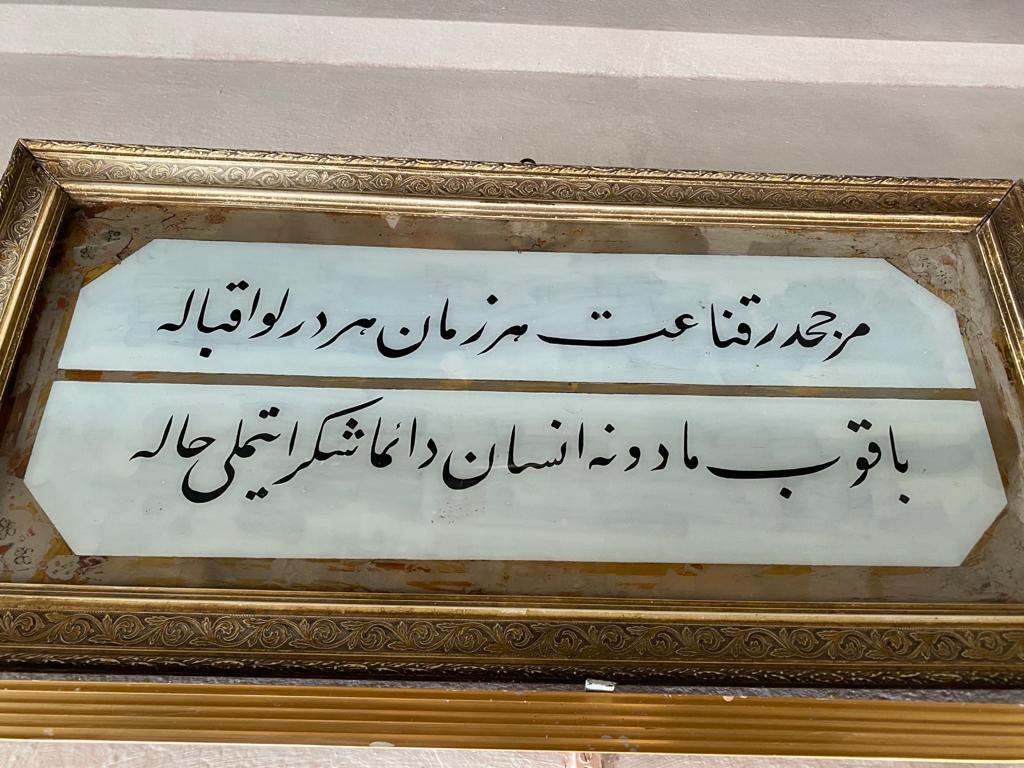 مرجحدر قناعت هر زمان هر درلو اقباله
باقوب مادونه انسان دائما شكر ايتملى حاله